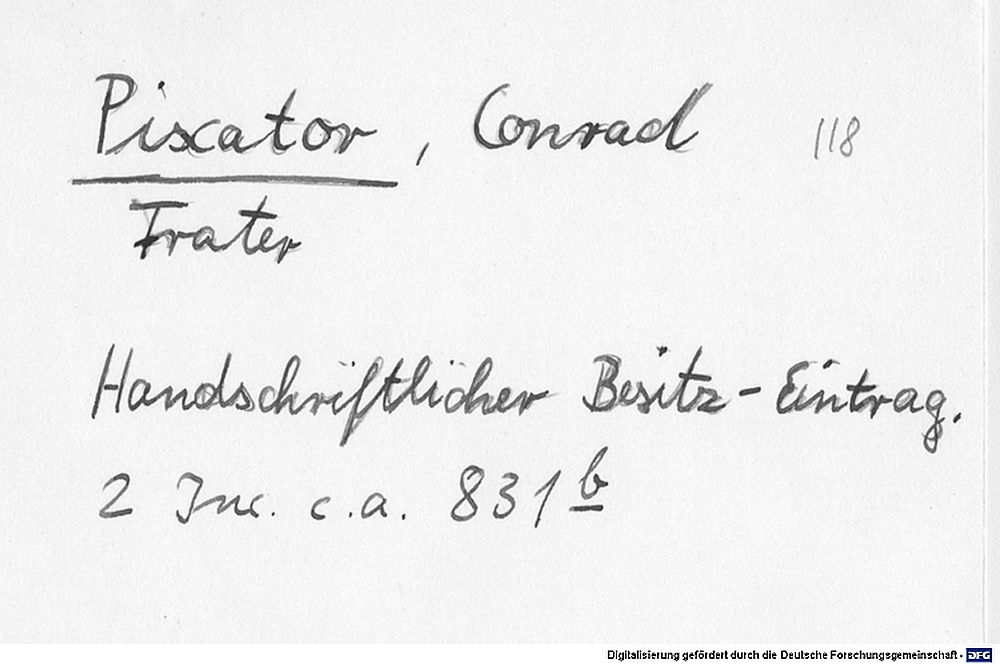 Piscator, Conrad 118
Frater
Handschriftlicher Besitz-Eintrag.
2 Inc. c.a. 831 b
Digitalisierung gefördert durch die Deutsche Forschungsgemeinschaft - DFG